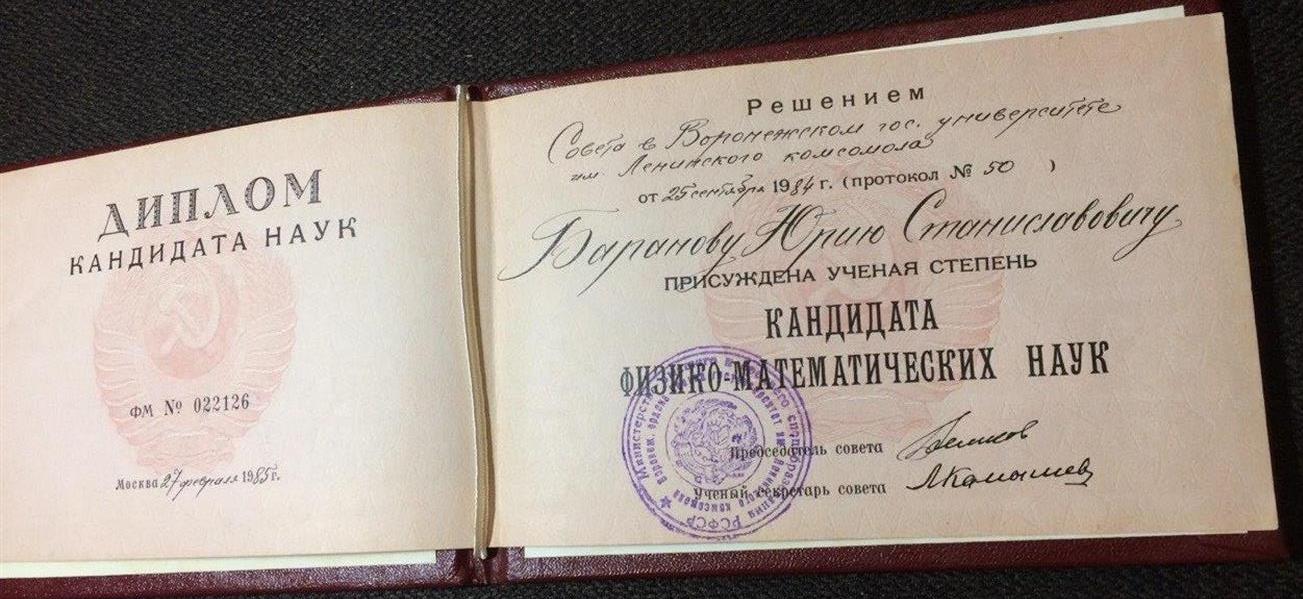 ДИПЛОМ
КАНДИДАТА НАУК
ФМ № 022126
Москва 27 февраля 1985 г.
Решением
Совета в Воронежском гос. университете
им. Ленинского комсомола
от 25 сентября 1984 г. (протокол № 50 )
Баранову Юрию Станиславовичу
ПРИСУЖДЕНА УЧЕНАЯ СТЕПЕНЬ
КАНДИДАТА
ФИЗИКО-МАТЕМАТИЧЕСКИХ НАУК
Председатель совета
Ученый секретарь совета
Министерство высшего и среднего спец. образования РСФСР
им. Ленинского комсомола